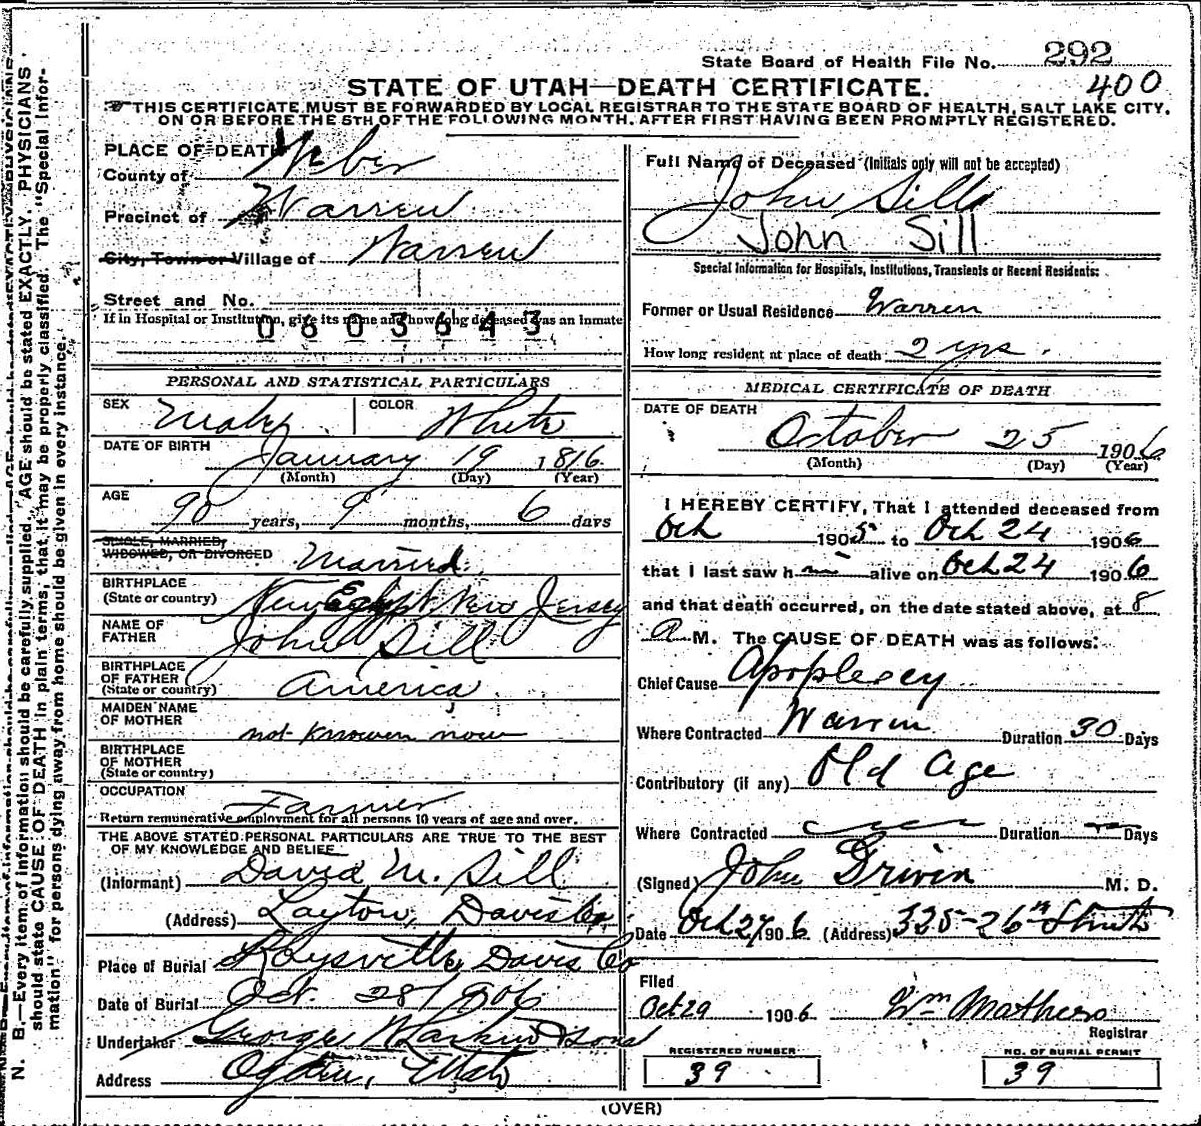 State Board of Health File No. 292
400
STATE OF UTAH—DEATH CERTIFICATE.
THIS CERTIFICATE MUST BE FORWARDED BY LOCAL REGISTRAR TO THE STATE BOARD OF HEALTH, SALT LAKE CITY,
ON OR BEFORE THE 5TH OF THE FOLLOWING MONTH, AFTER FIRST HAVING BEEN PROMPTLY REGISTERED.
N. B.—Every item of information should be carefully supplied. AGE should be stated EXACTLY. PHYSICIANS
should state CAUSE OF DEATH in plain terms, that it may be properly classified. The "Special Infor-
mation" for persons dying away from home should be given in every instance.
PLACE OF DEATH
County of Weber
Precinct of Warren
City, Town or Village of Warren
Street and No.
If in Hospital or Institution, give its name and how long deceased was an inmate
0603643
PERSONAL AND STATISTICAL PARTICULARS
SEX Male COLOR White
DATE OF BIRTH January 19 1816
(Month) (Day) (Year)
AGE 90 years, 9 months, 6 days
SINGLE, MARRIED,
WIDOWED, OR DIVORCED Married
BIRTHPLACE
(State or country) New Egypt New Jersey
NAME OF
FATHER John Sill
BIRTHPLACE
OF FATHER
(State or country) America
MAIDEN NAME
OF MOTHER not known now
BIRTHPLACE
OF MOTHER
(State or country)
OCCUPATION Farmer
Return remunerative employment for all persons 10 years of age and over.
THE ABOVE STATED PERSONAL PARTICULARS ARE TRUE TO THE BEST
OF MY KNOWLEDGE AND BELIEF
(Informant) David M. Sill
(Address) Layton, Davis Co.
Place of Burial Kaysville, Davis Co
Date of Burial Oct. 28 1906
Undertaker George W Larkin & Sons
Address Ogden, Utah
Full Name of Deceased (Initials only will not be accepted)
John Sill
John Sill
Special Information for Hospitals, Institutions, Transients or Recent Residents:
Former or Usual Residence Warren
How long resident at place of death 2 yrs.
MEDICAL CERTIFICATE OF DEATH
DATE OF DEATH
October 25 1906
(Month) (Day) (Year)
I HEREBY CERTIFY, That I attended deceased from
Oct 1905 to Oct 24 1906
that I last saw him alive on Oct 24 1906
and that death occurred, on the date stated above, at 8
A M. The CAUSE OF DEATH was as follows:
Chief Cause Apoplexy
Where Contracted Warren Duration 30 Days
Contributory (if any) Old Age
Where Contracted Duration Days
(Signed) John Driver M. D.
Date Oct 27 1906 (Address) 335-26th Street
Filed
Oct 29 1906 Wm Mathers
Registrar
REGISTERED NUMBER
39
NO. OF BURIAL PERMIT
39
(OVER)